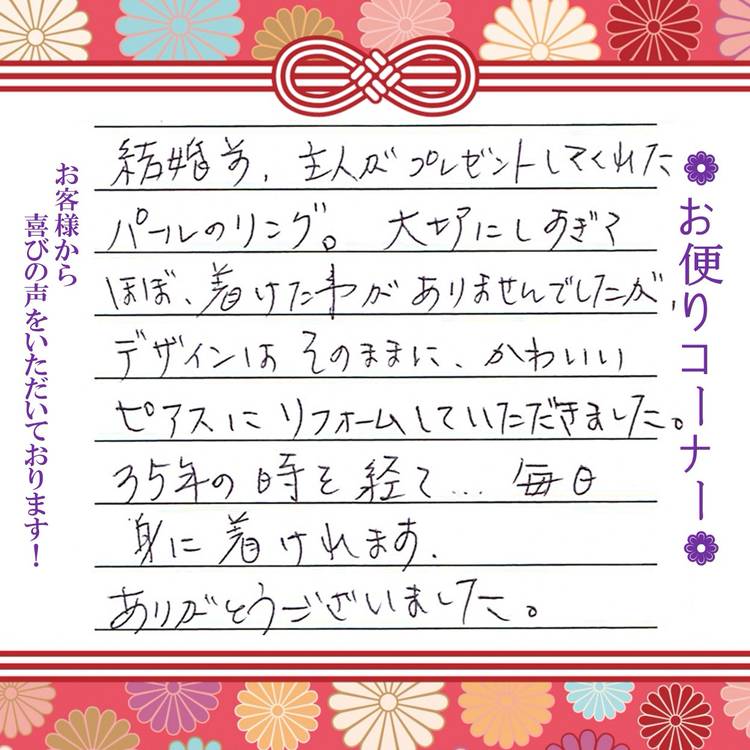 お便りコーナー
結婚前、主人がプレゼントしてくれた
パールのリング。大切にしすぎて
ほぼ、着けた事がありませんでしたが、
デザインはそのままに、かわいい
ピアスにリフォームしていただきました。
35年の時を経て… 毎日
身に着けれます。
ありがとうございました。
お客様から
喜びの声をいただいております!